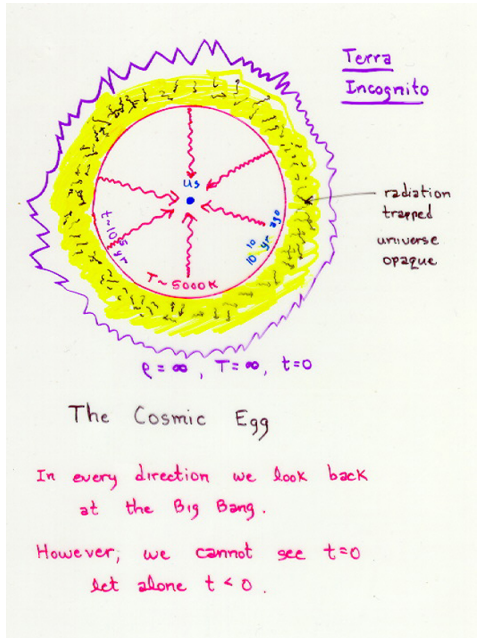 Terra
Incognito
us
t~10⁵ yr
10¹⁰ yr ago
T~5000K
radiation
trapped
universe
opaque
ρ=∞, T=∞, t=0
The Cosmic Egg
In every direction we look back
at the Big Bang.
However, we cannot see t=0
let alone t<0.